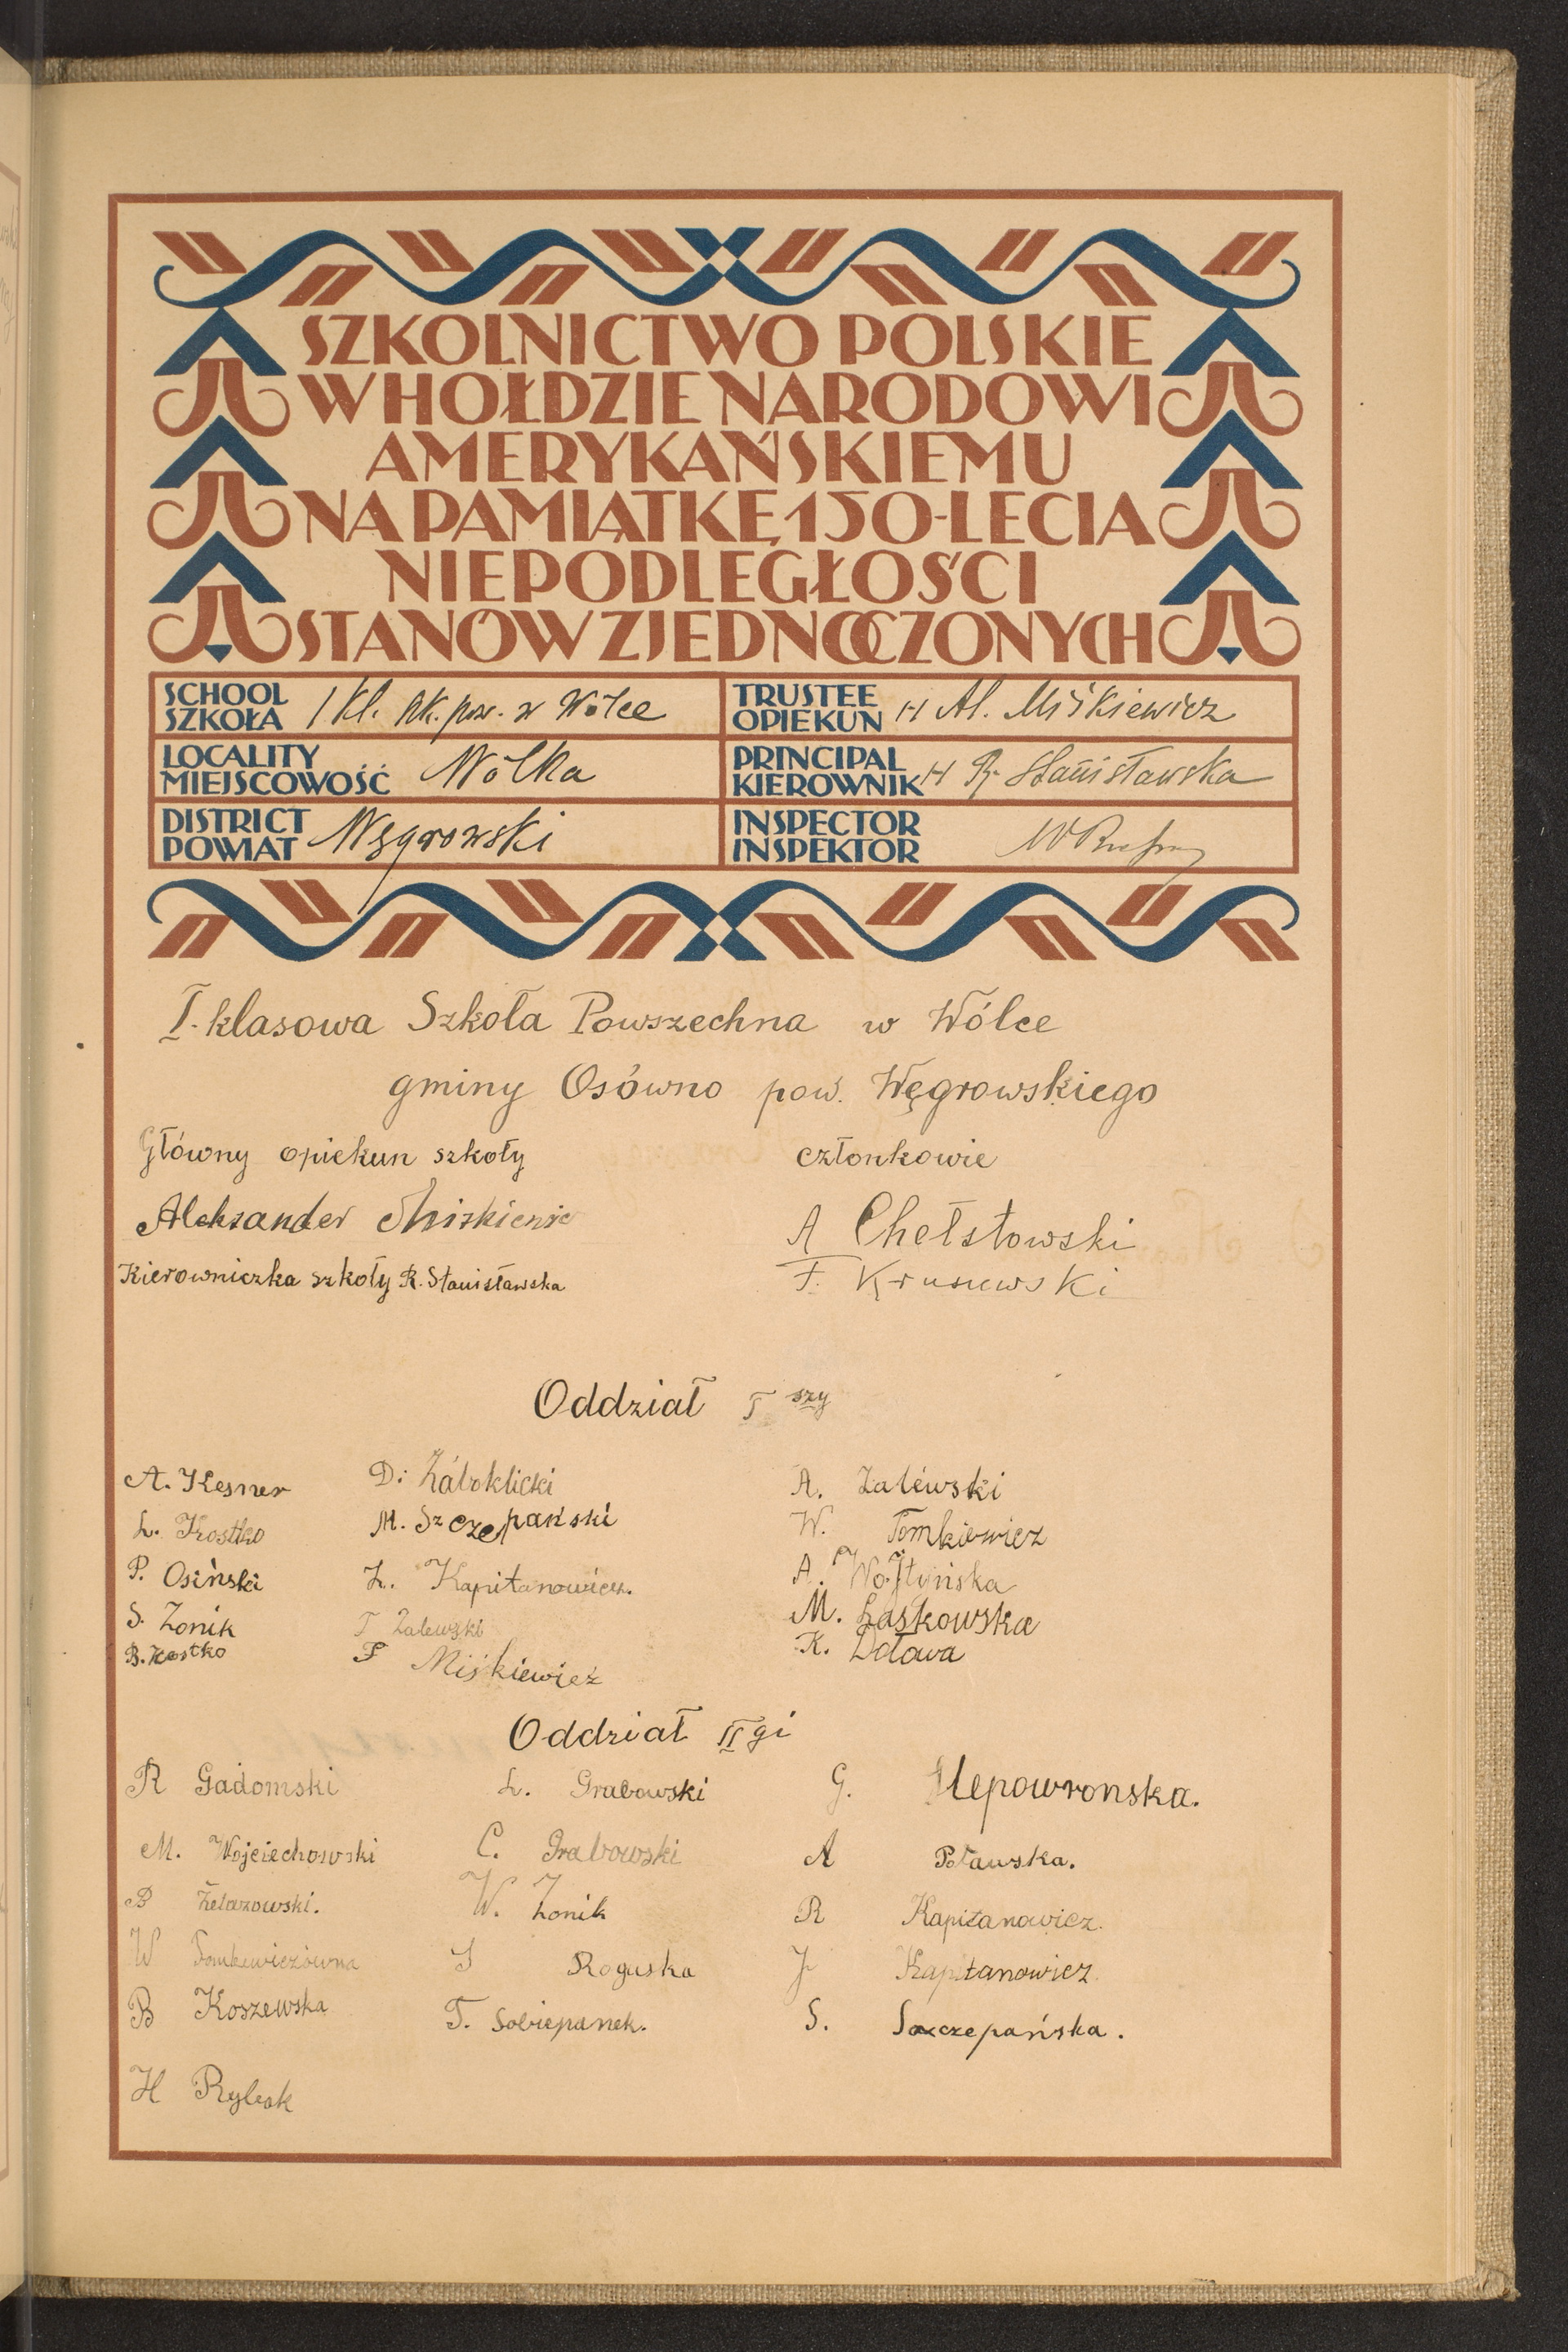 SZKOLNICTWO POLSKIE
W HOŁDZIE NARODOWI
AMERYKAŃSKIEMU
NA PAMIĄTKĘ 150-LECIA
NIEPODLEGŁOŚCI
STANÓW ZJEDNOCZONYCH
SCHOOL
SZKOŁA 1 Kl. szk. pow. w Wólce
TRUSTEE
OPIEKUN Al. Miśkiewicz
LOCALITY
MIEJSCOWOŚĆ Wólka
PRINCIPAL
KIEROWNIK R. Stanisławska
DISTRICT
POWIAT Węgrowski
INSPECTOR
INSPEKTOR
I-klasowa Szkoła Powszechna w Wólce
gminy Osówno pow. Węgrowskiego
Główny opiekun szkoły członkowie
Aleksander A Chełstowski
Kierowniczka szkoły R. Stanisławska F. Krusuwski
Oddział I szy
A. Kesner D. Załoklicki A. Zalewski
L. Kostko M. Szczepański W. Tomkiewicz
P. Osiński Z. Kapitanowicz. A. Wojtyńska
S. Zonik T Zalewski M. Laskowska
B. Kostko F Miśkiewicz K. Dołowa
Oddział II gi
R Gadomski L. Grabowski G. Nepowronska.
M. Wojciechowski C. Grabowski A Poławska.
B Żelazowski. W. Zonik R Kapitanowicz.
W Tomkewiczówna S Roguska J. Kapitanowicz
B Koszewska T. Sobiepanek. S. Szczepańska.
H Rylsok